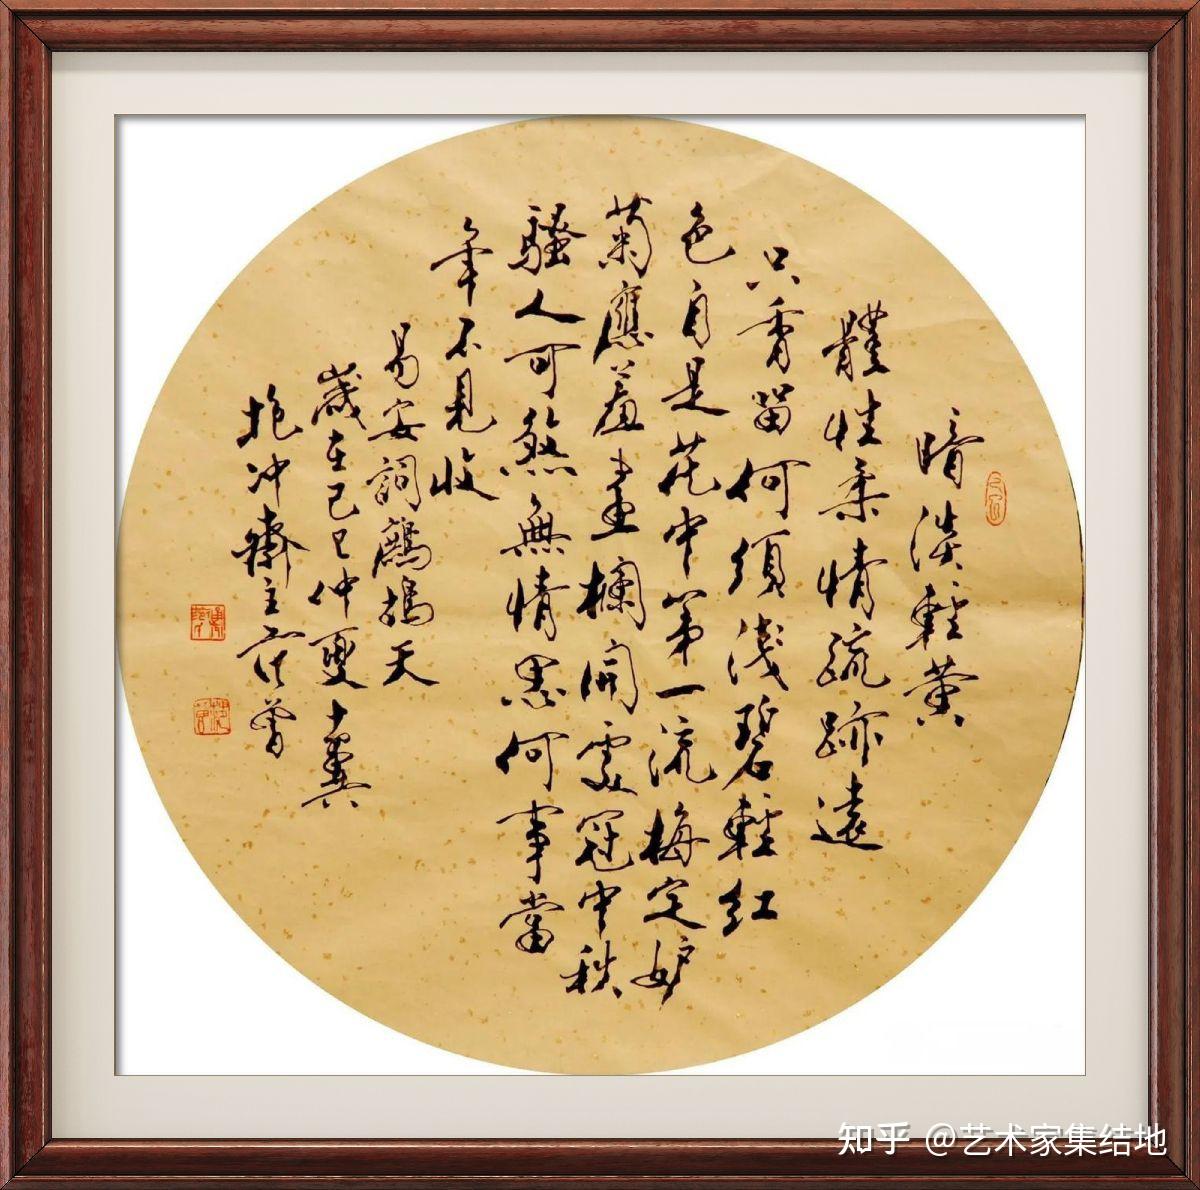 暗淡輕黃
體性柔情疏跡遠
只香留何須淺碧輕紅
色自是花中第一流梅定妒
菊應羞畫欄開處冠中秋
騷人可煞無情思何事當
年不見收
易安詞鷓鴣天
歲在己巳仲夏十翼
抱冲齋主范曾
知乎 @艺术家集结地